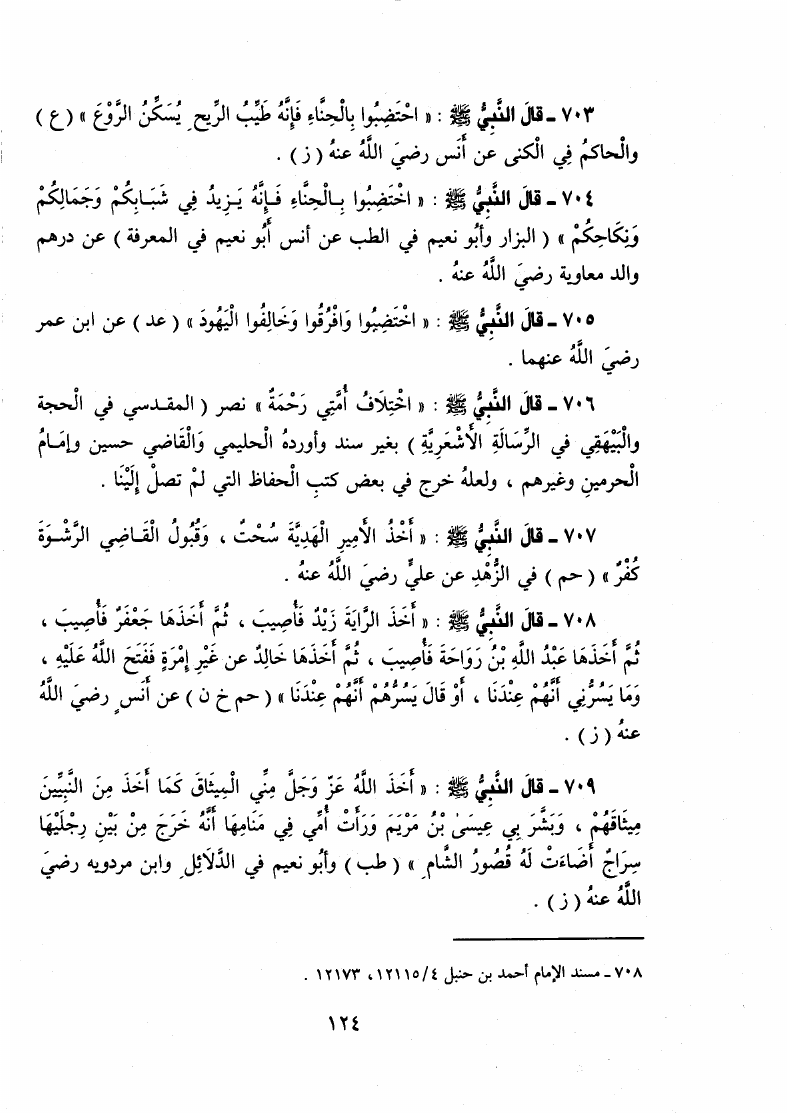 ٧٠٣ ـ قالَ النَّبِيُّ ﷺ : « اخْتَضِبُوا بِالْحِنَّاءِ فَإِنَّهُ طَيِّبُ الرِّيحِ يُسَكِّنُ الرَّوْعَ » ( ع )
والْحاكمُ فِي الْكنى عن أَنس رضيَ اللَّهُ عنهُ ( ز ) .
٧٠٤ ـ قالَ النَّبِيُّ ﷺ : « اخْتَضِبُوا بِالْحِنَّاءِ فَإِنَّهُ يَزِيدُ فِي شَبَابِكُمْ وَجَمَالِكُمْ
وَنِكَاحِكُمْ » ( البزار وأَبُو نعيم في الطب عن أنس أَبُو نعيم في المعرفة ) عن درهم
والد معاوية رضيَ اللَّهُ عنهُ .
٧٠٥ ـ قالَ النَّبِيُّ ﷺ : « اخْتَضِبُوا وَافْرُقُوا وَخَالِفُوا الْيَهُودَ » ( عد ) عن ابن عمر
رضيَ اللَّهُ عنهما .
٧٠٦ ـ قالَ النَّبِيُّ ﷺ : « اخْتِلَافُ أُمَّتِي رَحْمَةٌ » نصر ( المقدسي في الْحجة
والْبَيْهَقِي في الرِّسَالَةِ الْأَشْعَرِيَّةِ ) بغير سند وأوردهُ الْحليمي وَالْقَاضي حسين وإمَامُ
الْحرمينِ وغيرهم ، ولعلهُ خرج في بعض كتبِ الْحفاظ التي لمْ تصلْ إِلَيْنَا .
٧٠٧ ـ قالَ النَّبِيُّ ﷺ : « أَخْذُ الْأَمِيرِ الْهَدِيَّةَ سُحْتٌ ، وَقُبُولُ الْقَاضِي الرِّشْوَةَ
كُفْرٌ » ( حم ) في الزُّهْدِ عن عليٍّ رضيَ اللَّهُ عنهُ .
٧٠٨ ـ قالَ النَّبِيُّ ﷺ : « أَخَذَ الرَّايَةَ زَيْدٌ فَأُصِيبَ ، ثُمَّ أَخَذَهَا جَعْفَرٌ فَأُصِيبَ ،
ثُمَّ أَخَذَهَا عَبْدُ اللَّهِ بْنُ رَوَاحَةَ فَأُصِيبَ ، ثُمَّ أَخَذَهَا خَالِدٌ عن غَيْرِ إِمْرَةٍ فَفَتَحَ اللَّهُ عَلَيْهِ ،
وَمَا يَسُرُّنِي أَنَّهُمْ عِنْدَنَا ، أَوْ قَالَ يَسُرُّهُمْ أَنَّهُمْ عِنْدَنَا » ( حم خ ن ) عن أَنسٍ رضيَ اللَّهُ
عنهُ ( ز ) .
٧٠٩ ـ قالَ النَّبِيُّ ﷺ : « أَخَذَ اللَّهُ عَزَّ وَجَلَّ مِنِّي الْمِيثَاقَ كَمَا أَخَذَ مِنَ النَّبِيِّينَ
مِيثَاقَهُمْ ، وَبَشَّرَ بِي عِيسَىٰ بْنُ مَرْيَمَ وَرَأَتْ أُمِّي فِي مَنَامِهَا أَنَّهُ خَرَجَ مِنْ بَيْنِ رِجْلَيْهَا
سِرَاجٌ أَضَاءَتْ لَهُ قُصُورُ الشَّامِ » ( طب ) وأَبُو نعيم في الدَّلَائِلِ وابن مردويه رضيَ
اللَّهُ عنهُ ( ز ) .
٧٠٨ ـ مسند الإمام أحمد بن حنبل ١٢١١٥/٤، ١٢١٧٣ .
١٢٤